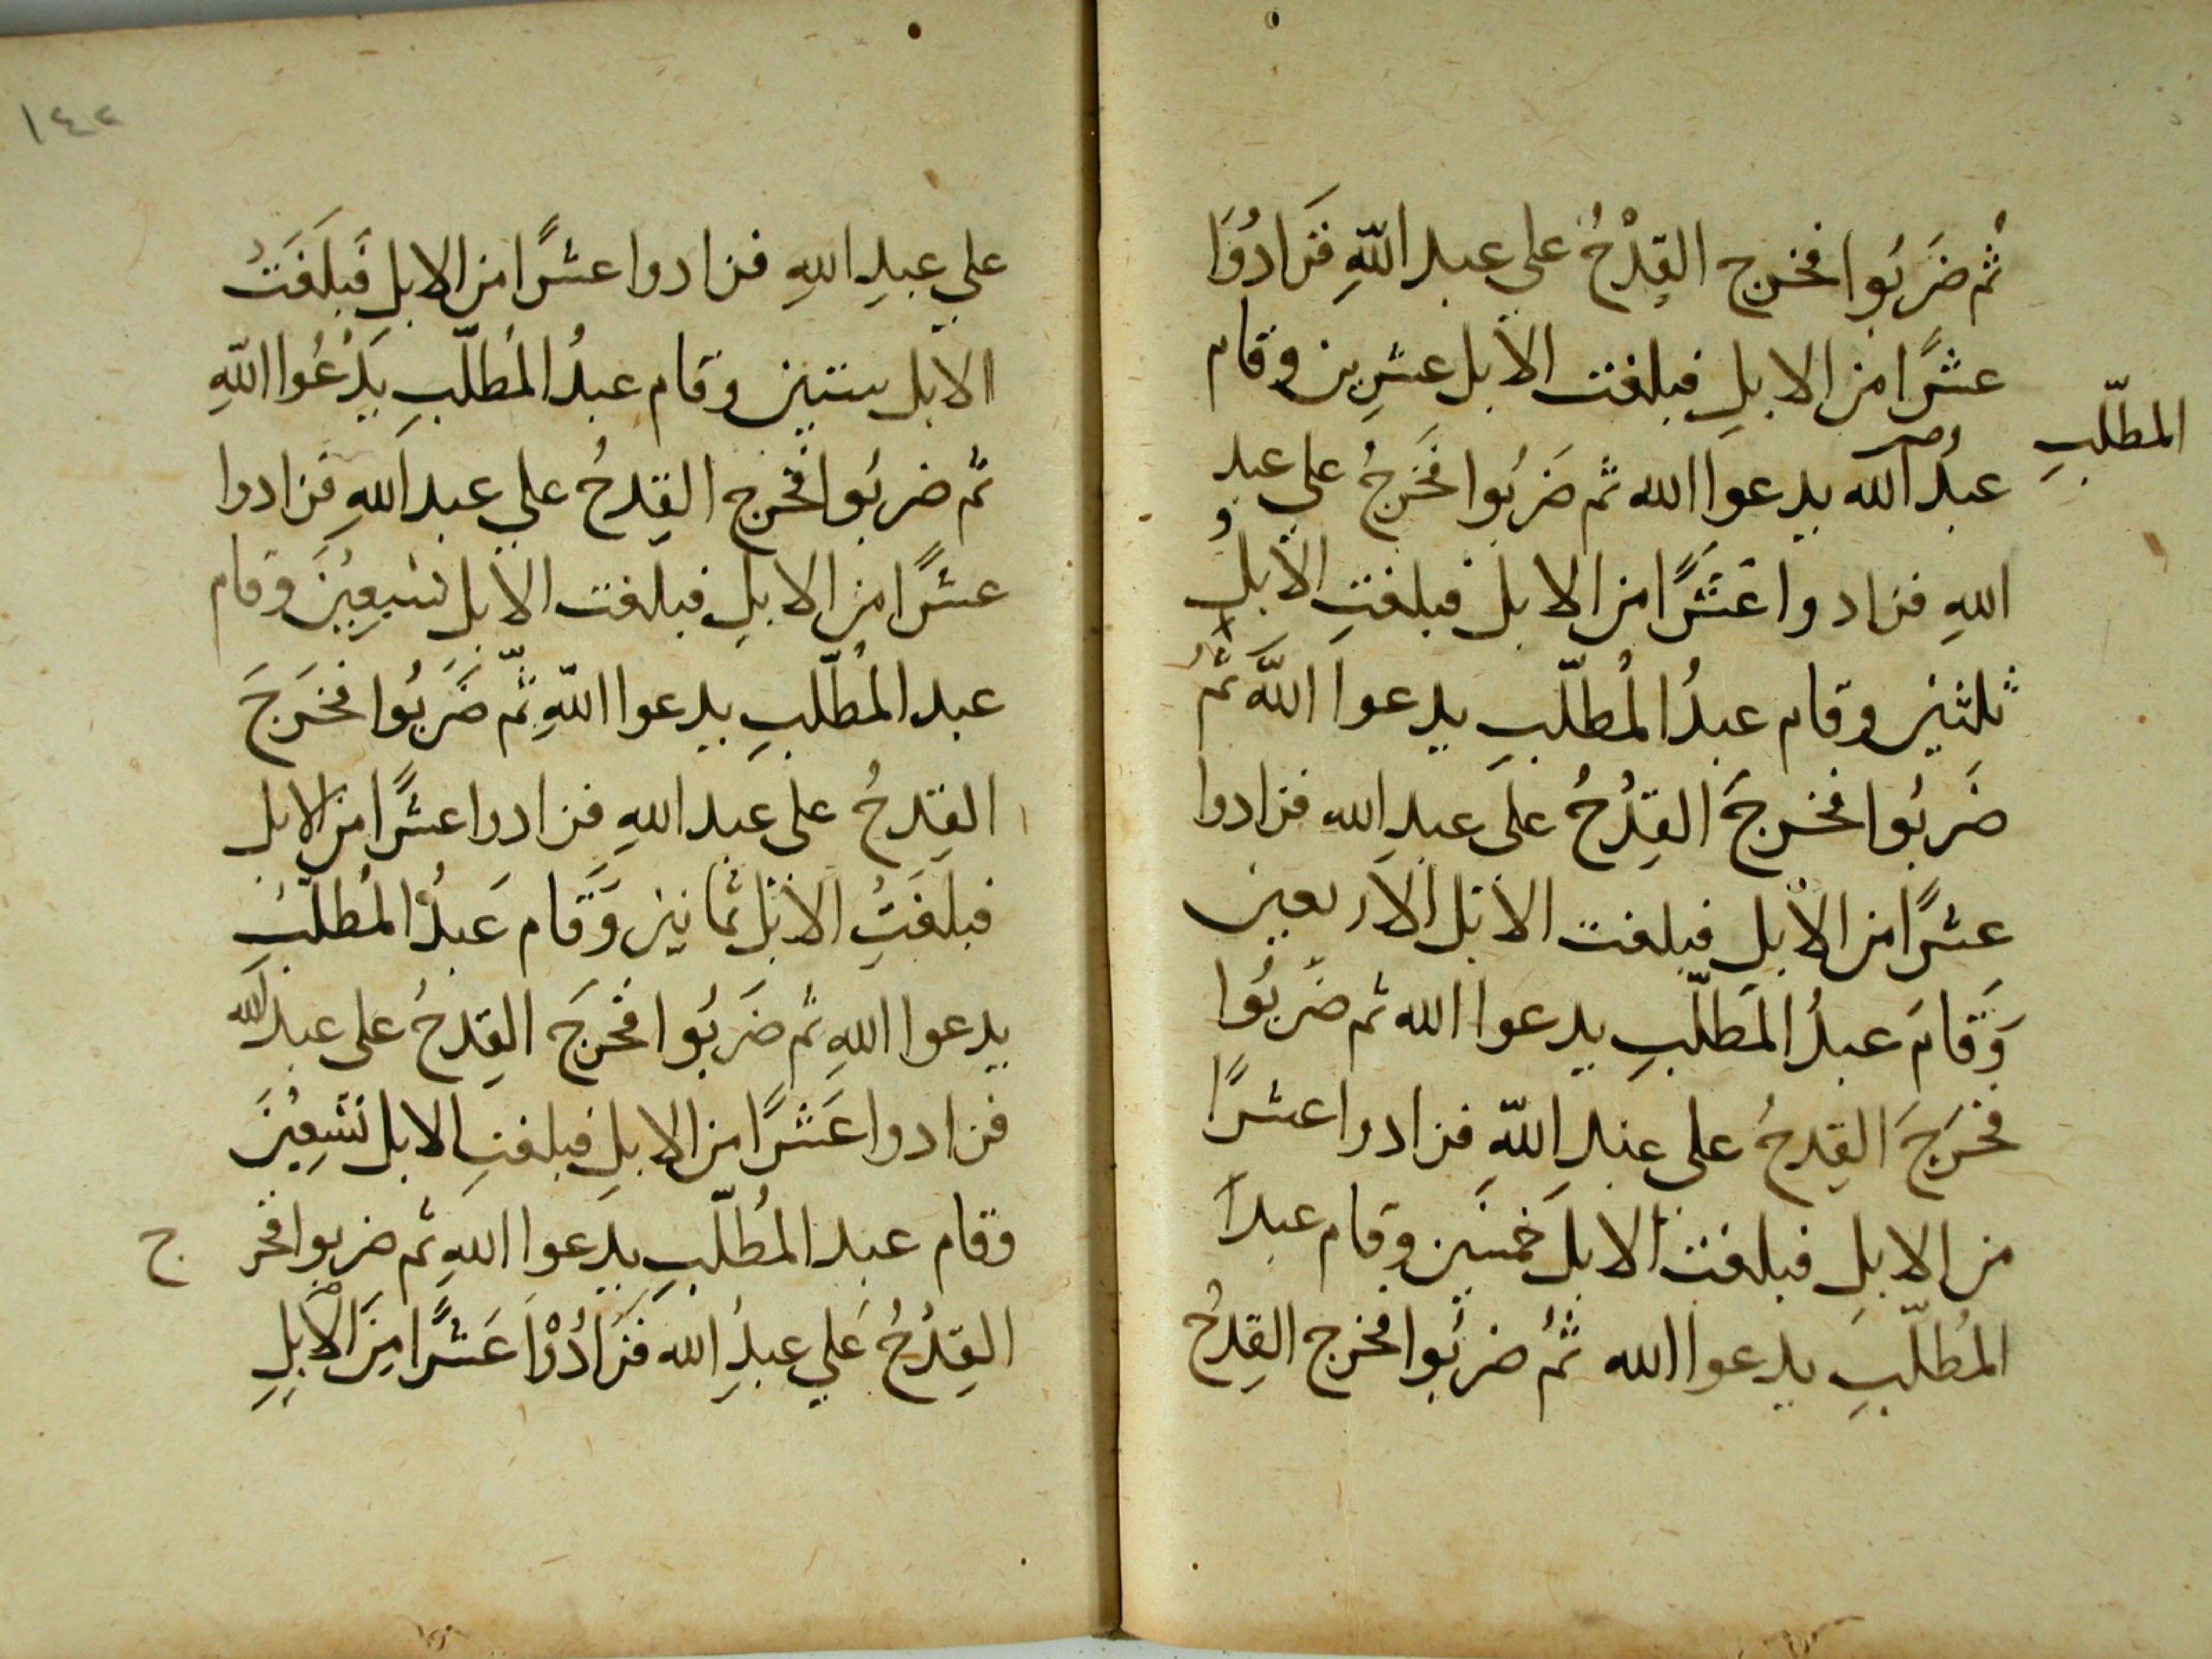 ثم ضَرَبُوا فخرج القِدْحُ علي عبد اللّهِ فَزَادُوَا
عشرًا من الابلِ فبلغت الابل عشرِين وقام
المطلّبِ
عبدُ الله يدعوا الله ثم ضَرَبُوا فَخَرجُ علي عبد
اللهِ فزادوا عَشَرًا من الابل فبلغتِ الابلُ
ثلثين وقام عبدُ المُطلّبِ يدعوا اللهَ ثمَّ
ضَربُوا فخرجَ القِدْحُ على عبدِ الله فزادوا
عشرًا من الابلِ فبلغت الابل الاربعين
وَقامَ عبدُ المطلّبِ يدعوا الله ثم ضَربُوا
فخرَجَ القِدحُ على عبدِ اللّهِ فزادوا عشرًا
من الابلِ فبلغت الابل خمسَين وقام عبد
المُطلّبِ يدعوا الله ثمُ ضربُوا فخرج القِدحُ
١٤٢
علي عبدِ اللهِ فزادوا عشرًا من الابلِ فَبلَغَتْ
الابل ستين وقام عبدُ المُطلّبِ يَدْعُوا اللّهِ
ثم ضربُوا فخرج القِدحُ علي عبد اللهِ فزادوا
عشرًا من الابلِ فبلغت الابل سَبعِينَ وقام
عبد المُطلّبِ يدعوا اللّهِ ثمّ ضَرَبُوا فخرَجَ
القِدحُ على عبد اللهِ فزادوا عشرًا من الابل
فبلغَتْ الابل ثمانين وَقام عَبدُ المُطلّبُ
يدعوا اللهِ ثم ضَرَبُوا فخرَجَ القِدحُ على عبد الله
فزادوا عَشرًا من الابلِ فبلغتِ الابل تسعِينَ
وقام عبد المُطلّبِ يدعوا اللهِ ثم ضربوا فخر
ج
القِدْحُ عَلي عبدِ الله فَزَادُوْا عَشرًا مِنَ الاْبلِ